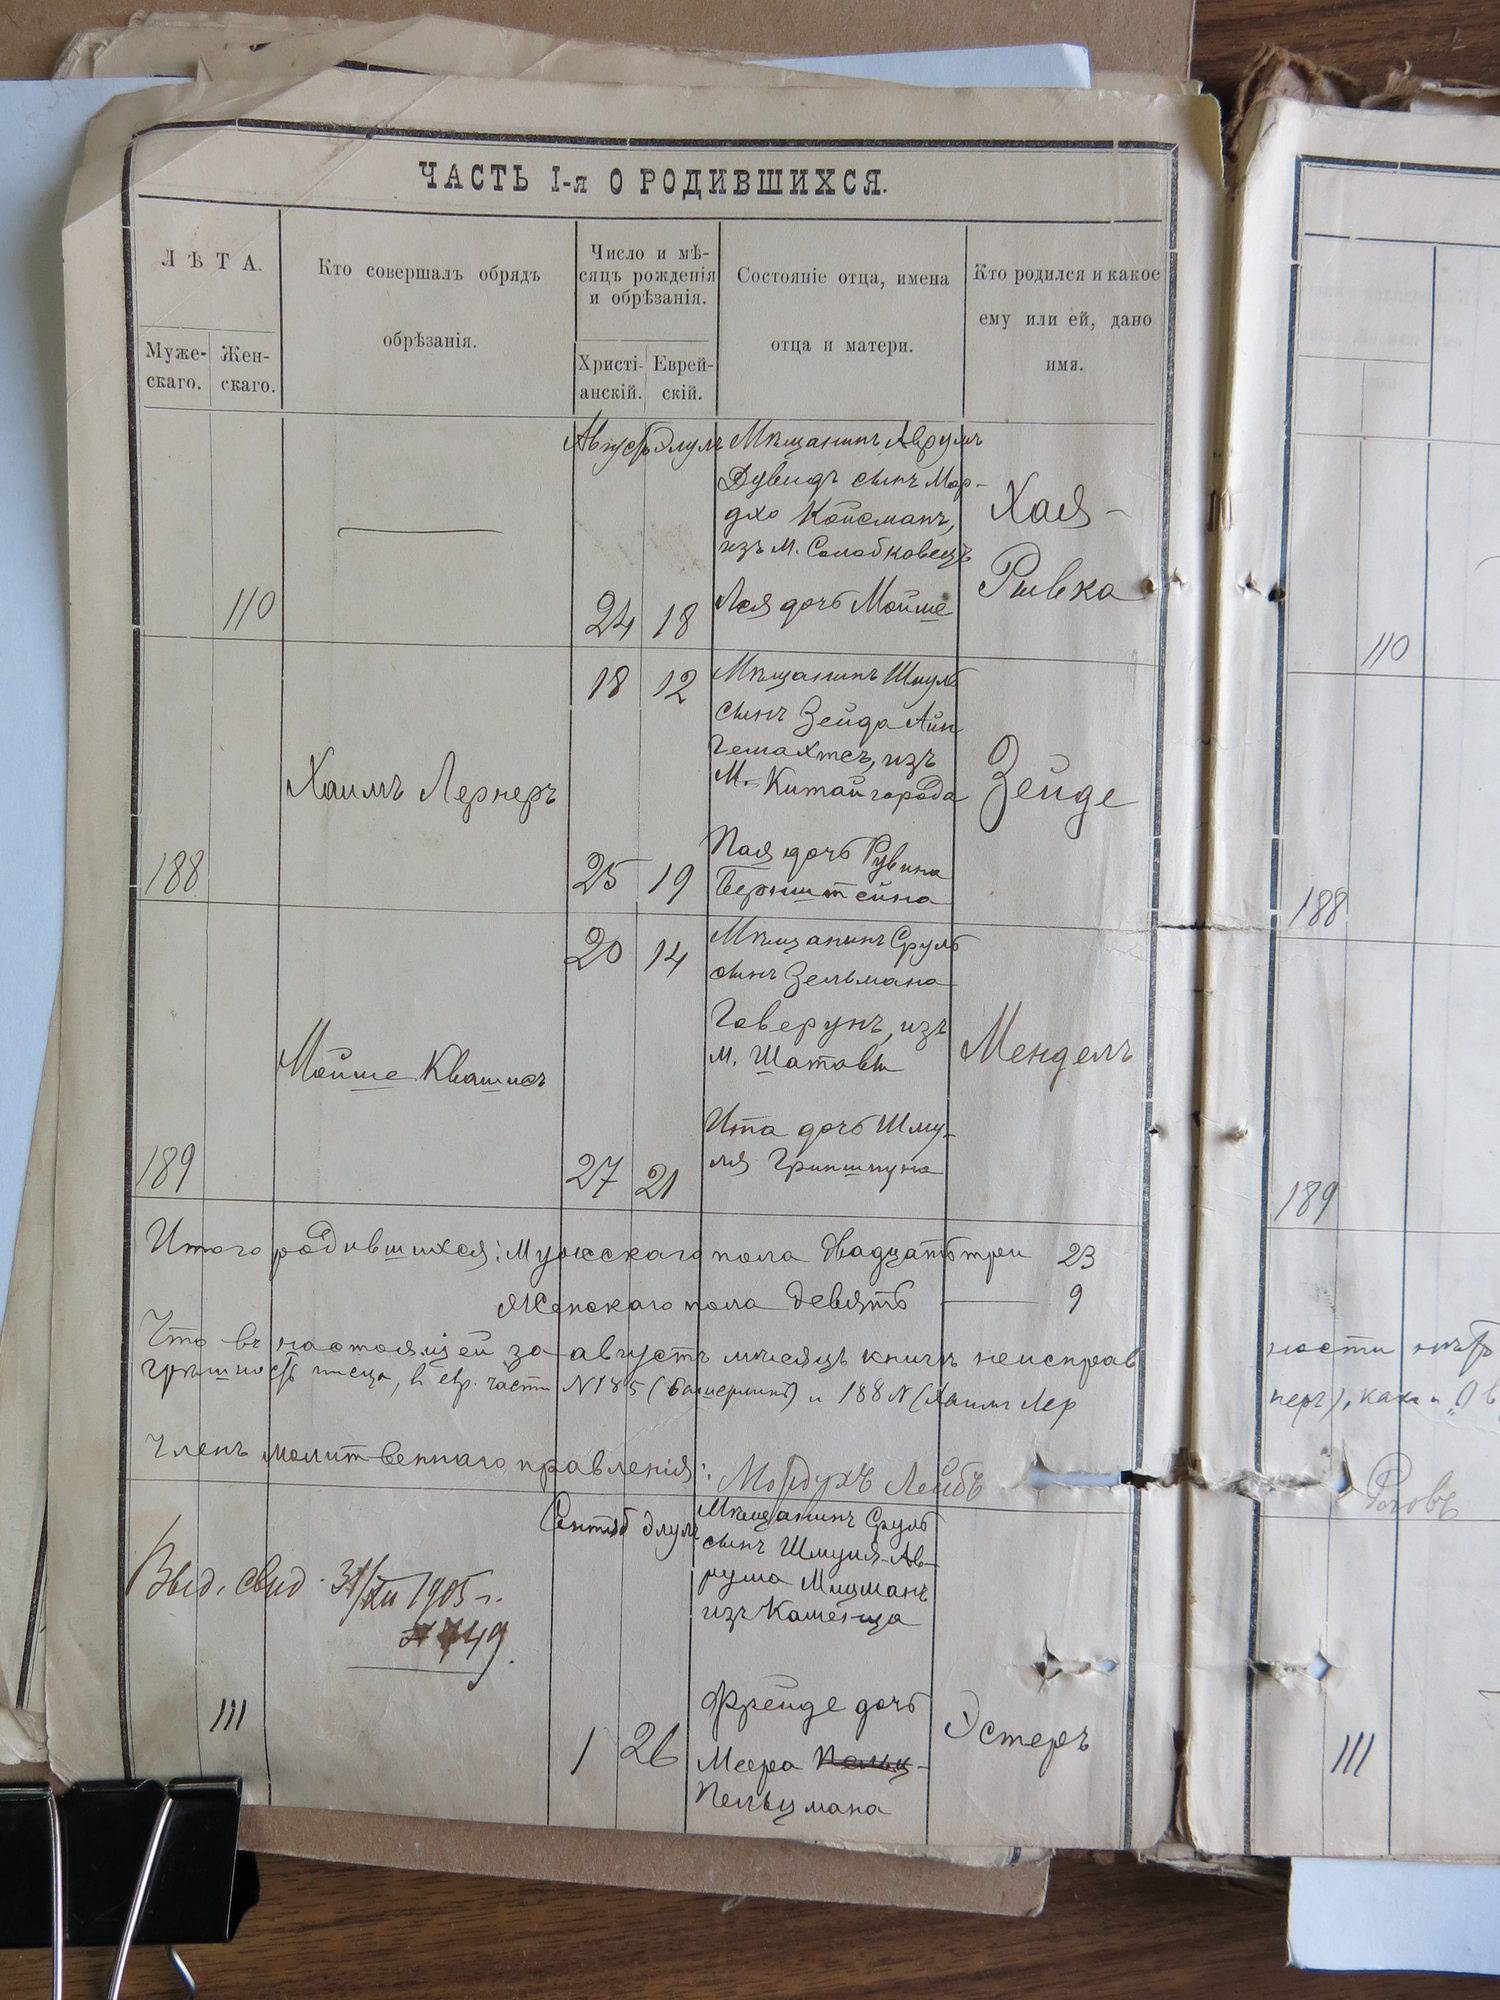 ЧАСТЬ I-я О РОДИВШИХСЯ.
ЛѢТА.
Муже-
скаго.
Жен-
скаго.
Кто совершалъ обрядъ
обрѣзанія.
Число и мѣ-
сяцъ рожденія
и обрѣзанія.
Христі-
анскій.
Еврей-
скій.
Состояніе отца, имена
отца и матери.
Кто родился и какое
ему или ей, дано
имя.
Августъ Элулъ Мѣщанинъ Аврумъ
Дувидъ сынъ Мор-
дхо Койсманъ,
изъ м. Солобковецъ
Лея дочь Мойше
Хая-
Рывка
110
24 18
18 12
Мѣщанинъ Шмуль
сынъ Зейда Айн
гемахтеръ, изъ
М. Китайгорода
Хаимъ Лернеръ
Зейде
Пая дочь Рувина
Бернштейна
188
25 19
20 14
Мѣщанинъ Сруль
сынъ Зельмана
Говерунъ, изъ
м. Шатавы
Мойше Квашисъ
Мендель
Ита дочь Шму-
ля Гриншпуна
189
27 21
Итого родившихся: Мужскаго пола двадцать три 23
Женскаго пола девять — 9
Что въ настоящей за августъ мѣсяцъ книгѣ неисправ
въ евр. части N 185 и 188 N (Хаимъ Лер
Членъ молитвеннаго правленія: Мордухъ Лейбъ
Сентяб Элулъ
Мѣщанинъ Сруль
сынъ Шмуля-Ав-
рума Мицманъ
изъ Каменца
Выд. свид. 31/XII 1905 г.
749.
Фрейде дочь
Меера Пельц-
Пельцмана
Эстеръ
111
1 26
110
188
189
ности
неръ), какъ и
Роговъ
111